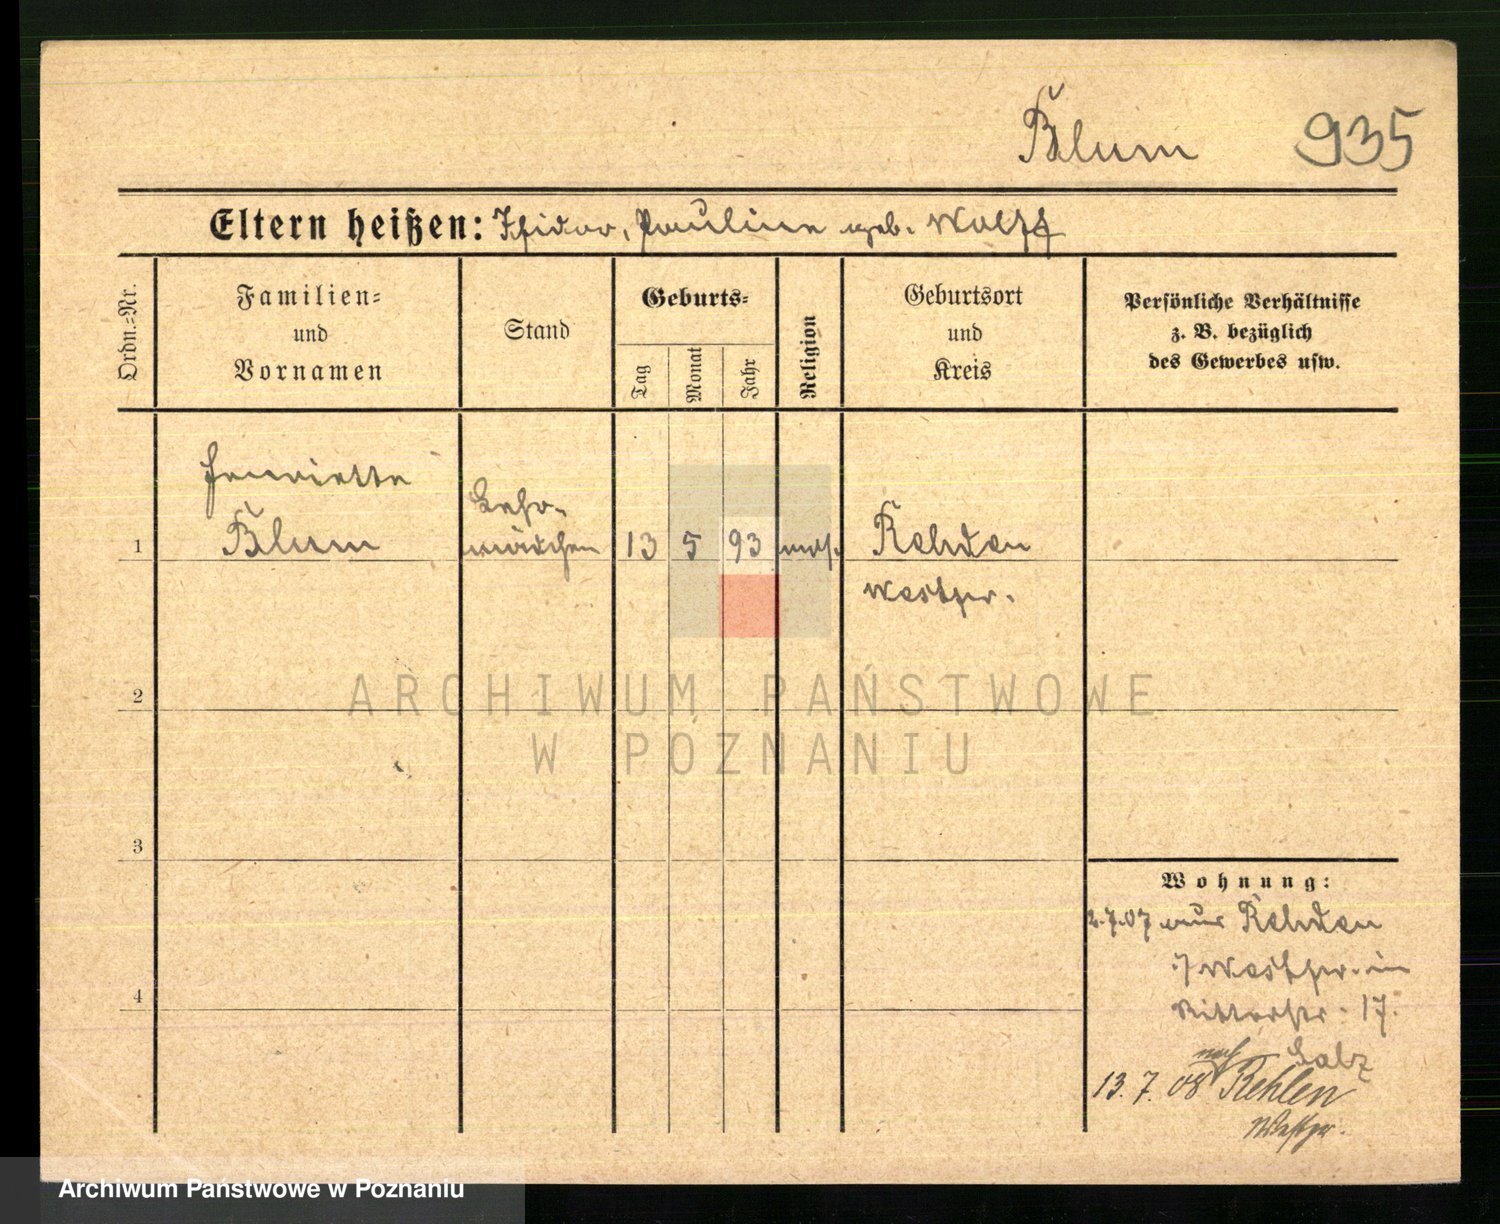 Blum 935
Eltern heißen: Isidor, Pauline geb. Wolff
Ordn.=Nr.
Familien=
und
Vornamen
Stand
Geburts=
Tag
Monat
Jahr
Religion
Geburtsort
und
Kreis
Persönliche Verhältnisse
z. B. bezüglich
des Gewerbes usw.
Henriette
Blum
Lehr-
mädchen
1
13 5 93 mos.
Rehden
Westpr.
2
3
4
Wohnung:
2.7.07 aus Rehden
Westpr. in
Ritterstr. 17.
nach
13. 7. 08
Westpr.
ARCHIWUM PAŃSTWOWE
W POZNANIU
Archiwum Państwowe w Poznaniu